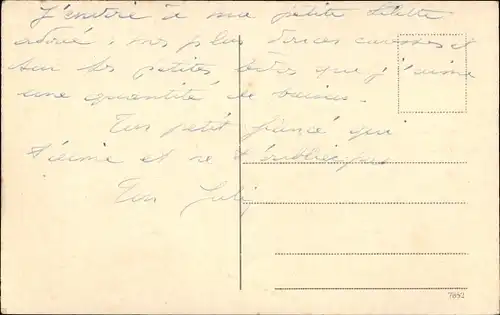 J'envoie à ma petite Lilette
adorée, mes plus douces caresses et
sur ses petites que j'aime
une quantité de baisers.
Ton petit fiancé qui
t'aime et ne t'oublie pas
Ton
7692